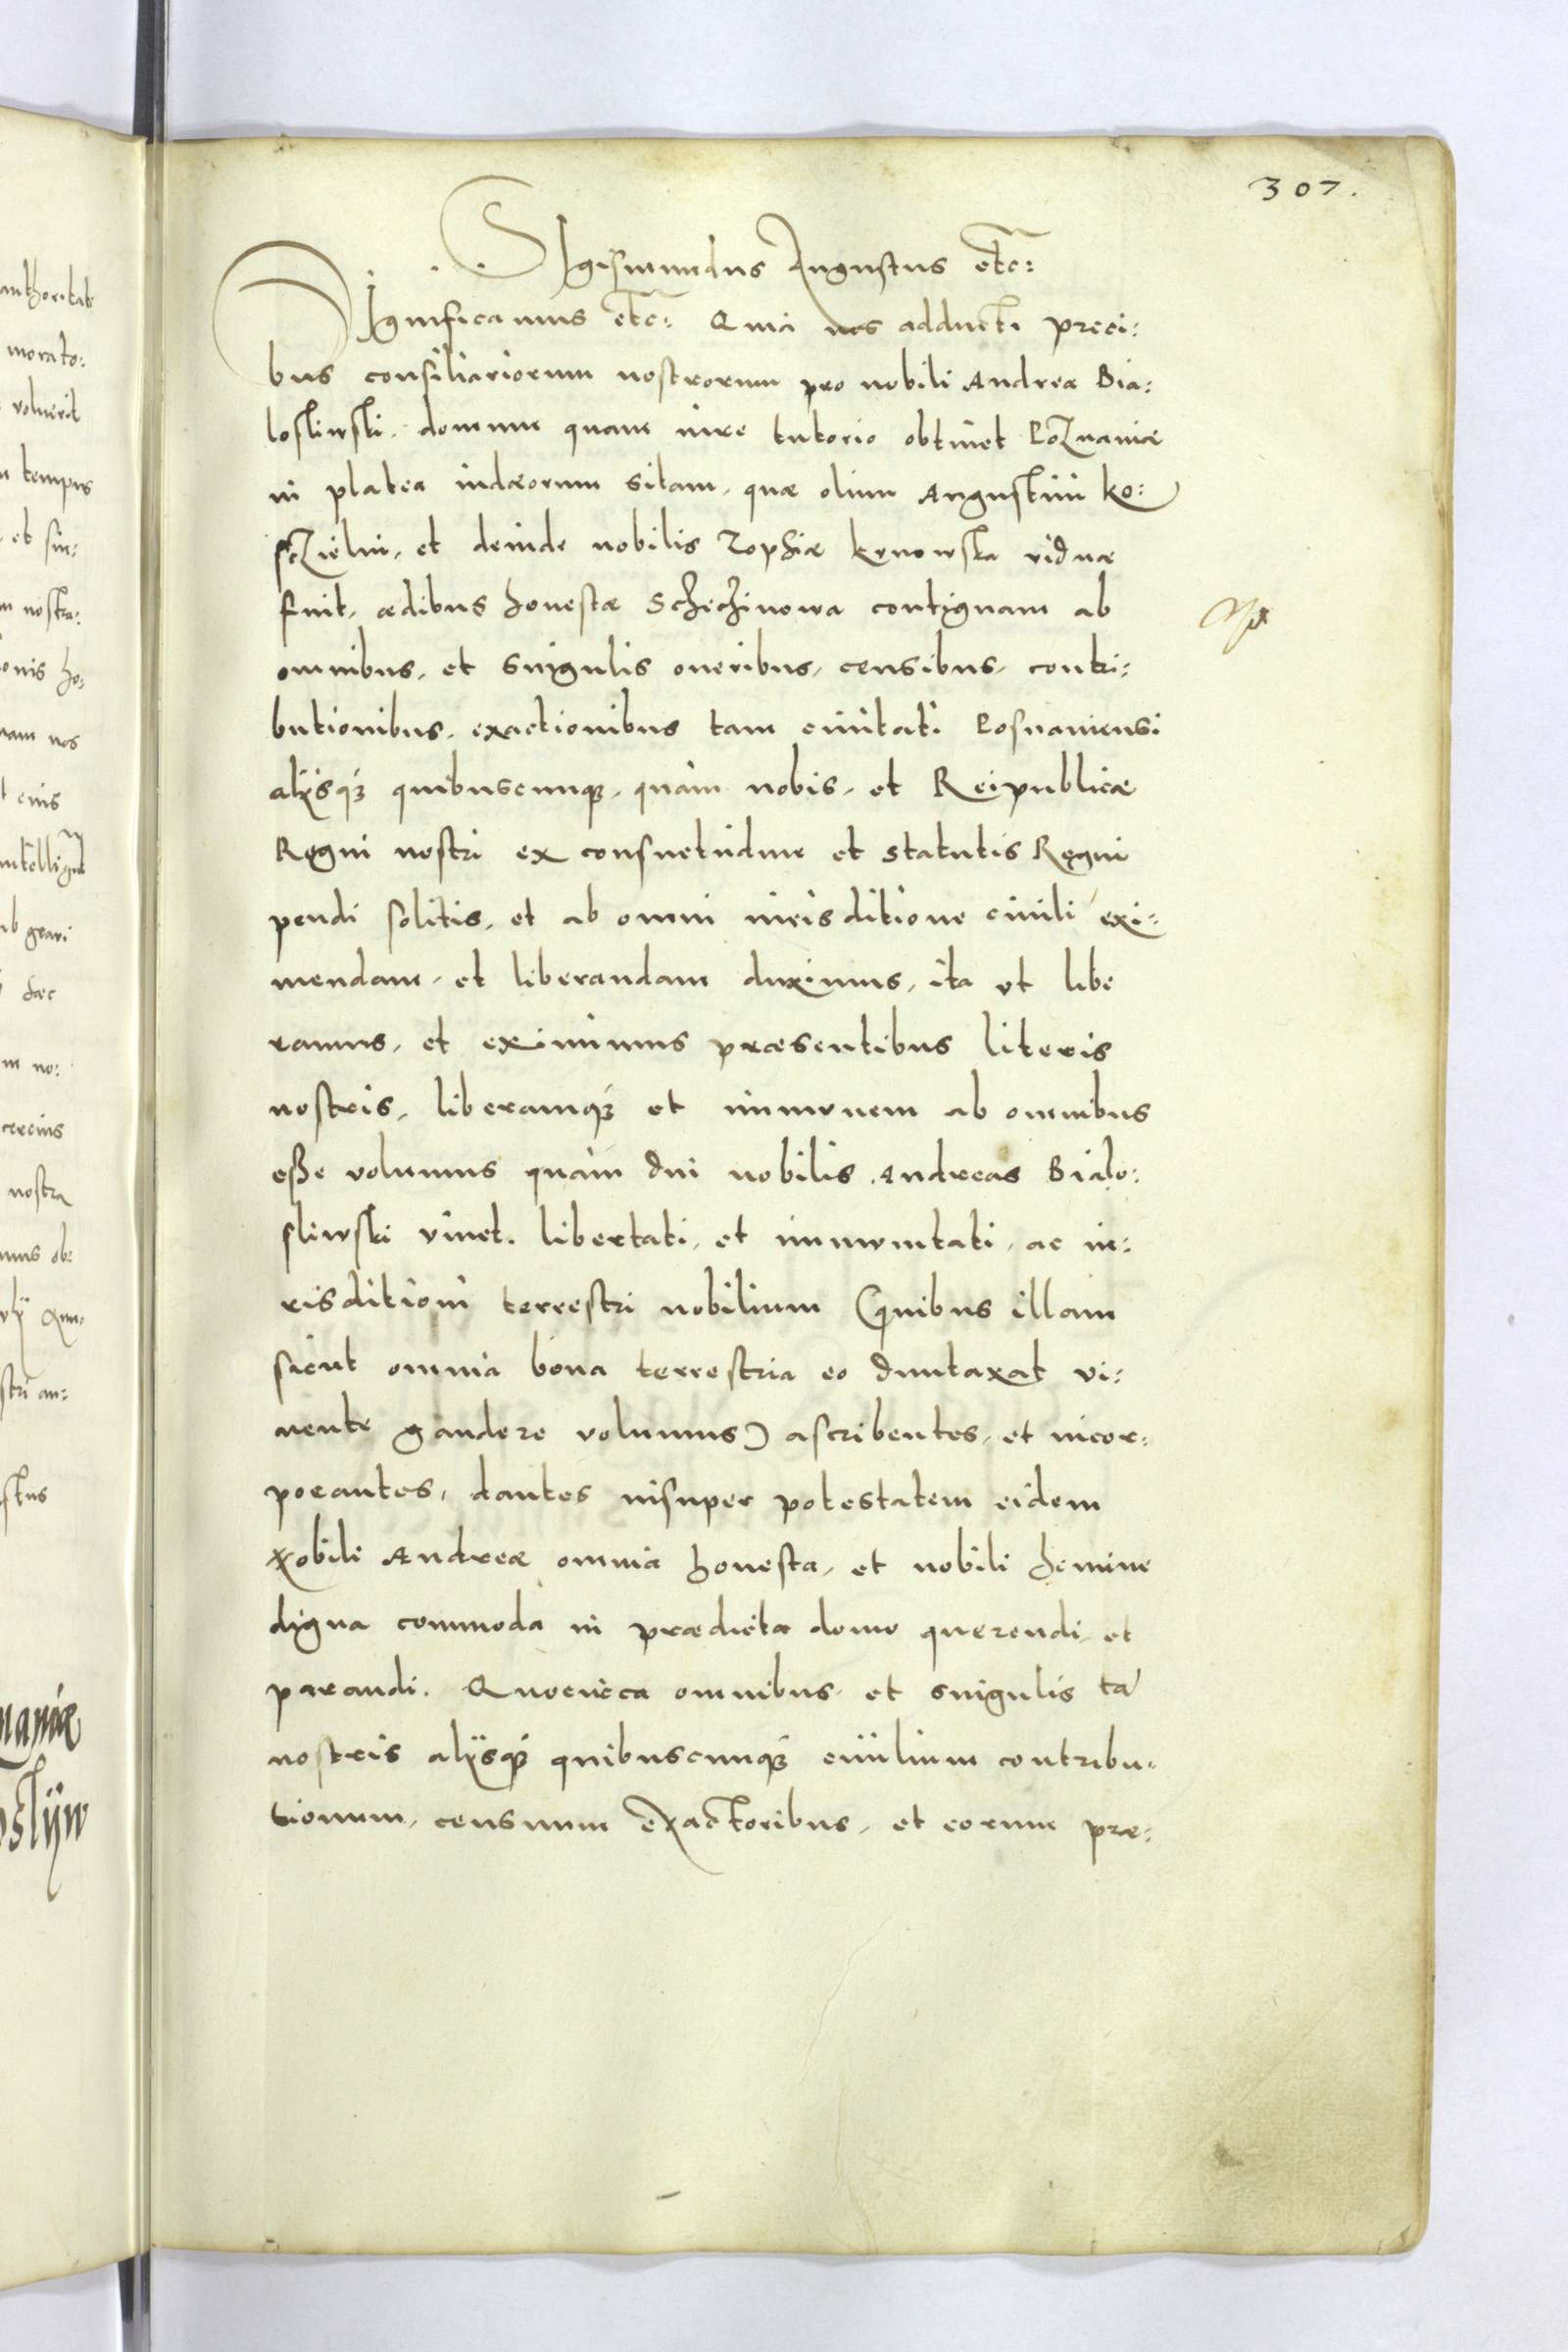 307.
SIgismundus Augustus etc:
SIgnificamus etc: Quia nos adducti preci:
bus consiliariorum nostrorum pro nobili Andrea Bia:
losliwski, domum quam iure tutorio obtinet Poznaniæ
in platea iudæorum sitam, quæ olim Augustini Ko:
sczielni, et deinde nobilis Zophiæ Krnowska viduæ
fuit, ædibus honestæ Schechinowa contiguam ab
omnibus, et singulis oneribus, censibus, contri:
butionibus, exactionibus tam ciuitati Posnaniensi
alijsq3 quibuscunq3, quàm nobis, et Reipublicæ
Regni nostri ex consuetudine et statutis Regni
pendi solitis, et ab omni iurisditione ciuili exi:
mendam, et liberandam duximus, ita vt libe
ramus, et eximimus præsentibus literis
nostris, liberamq3 et immunem ab omnibus
esse volumus quàm diu nobilis Andreas Bialo:
sliwski viuet. libertati, et immunitati, ac iu:
risditioni terrestri nobilium (quibus illam
sicut omnia bona terrestria eo duntaxat vi:
uente gaudere volumus) ascribentes, et incor:
porantes, dantes insuper potestatem eidem
Nobili Andreæ omnia honesta, et nobili homine
digna commoda in prædicta domo querendi, et
parandi. Quocirca omnibus, et singulis tā
nostris alijsq3 quibuscunq3 ciuilium contribu:
tionum, censuum exactoribus, et eorum præ:
authoritate
morato:
voluerit
tempus
et sin:
nostra:
onis ho:
nos
eius
intelligunt
graui
no:
nostra
ob:
stri an:
stus